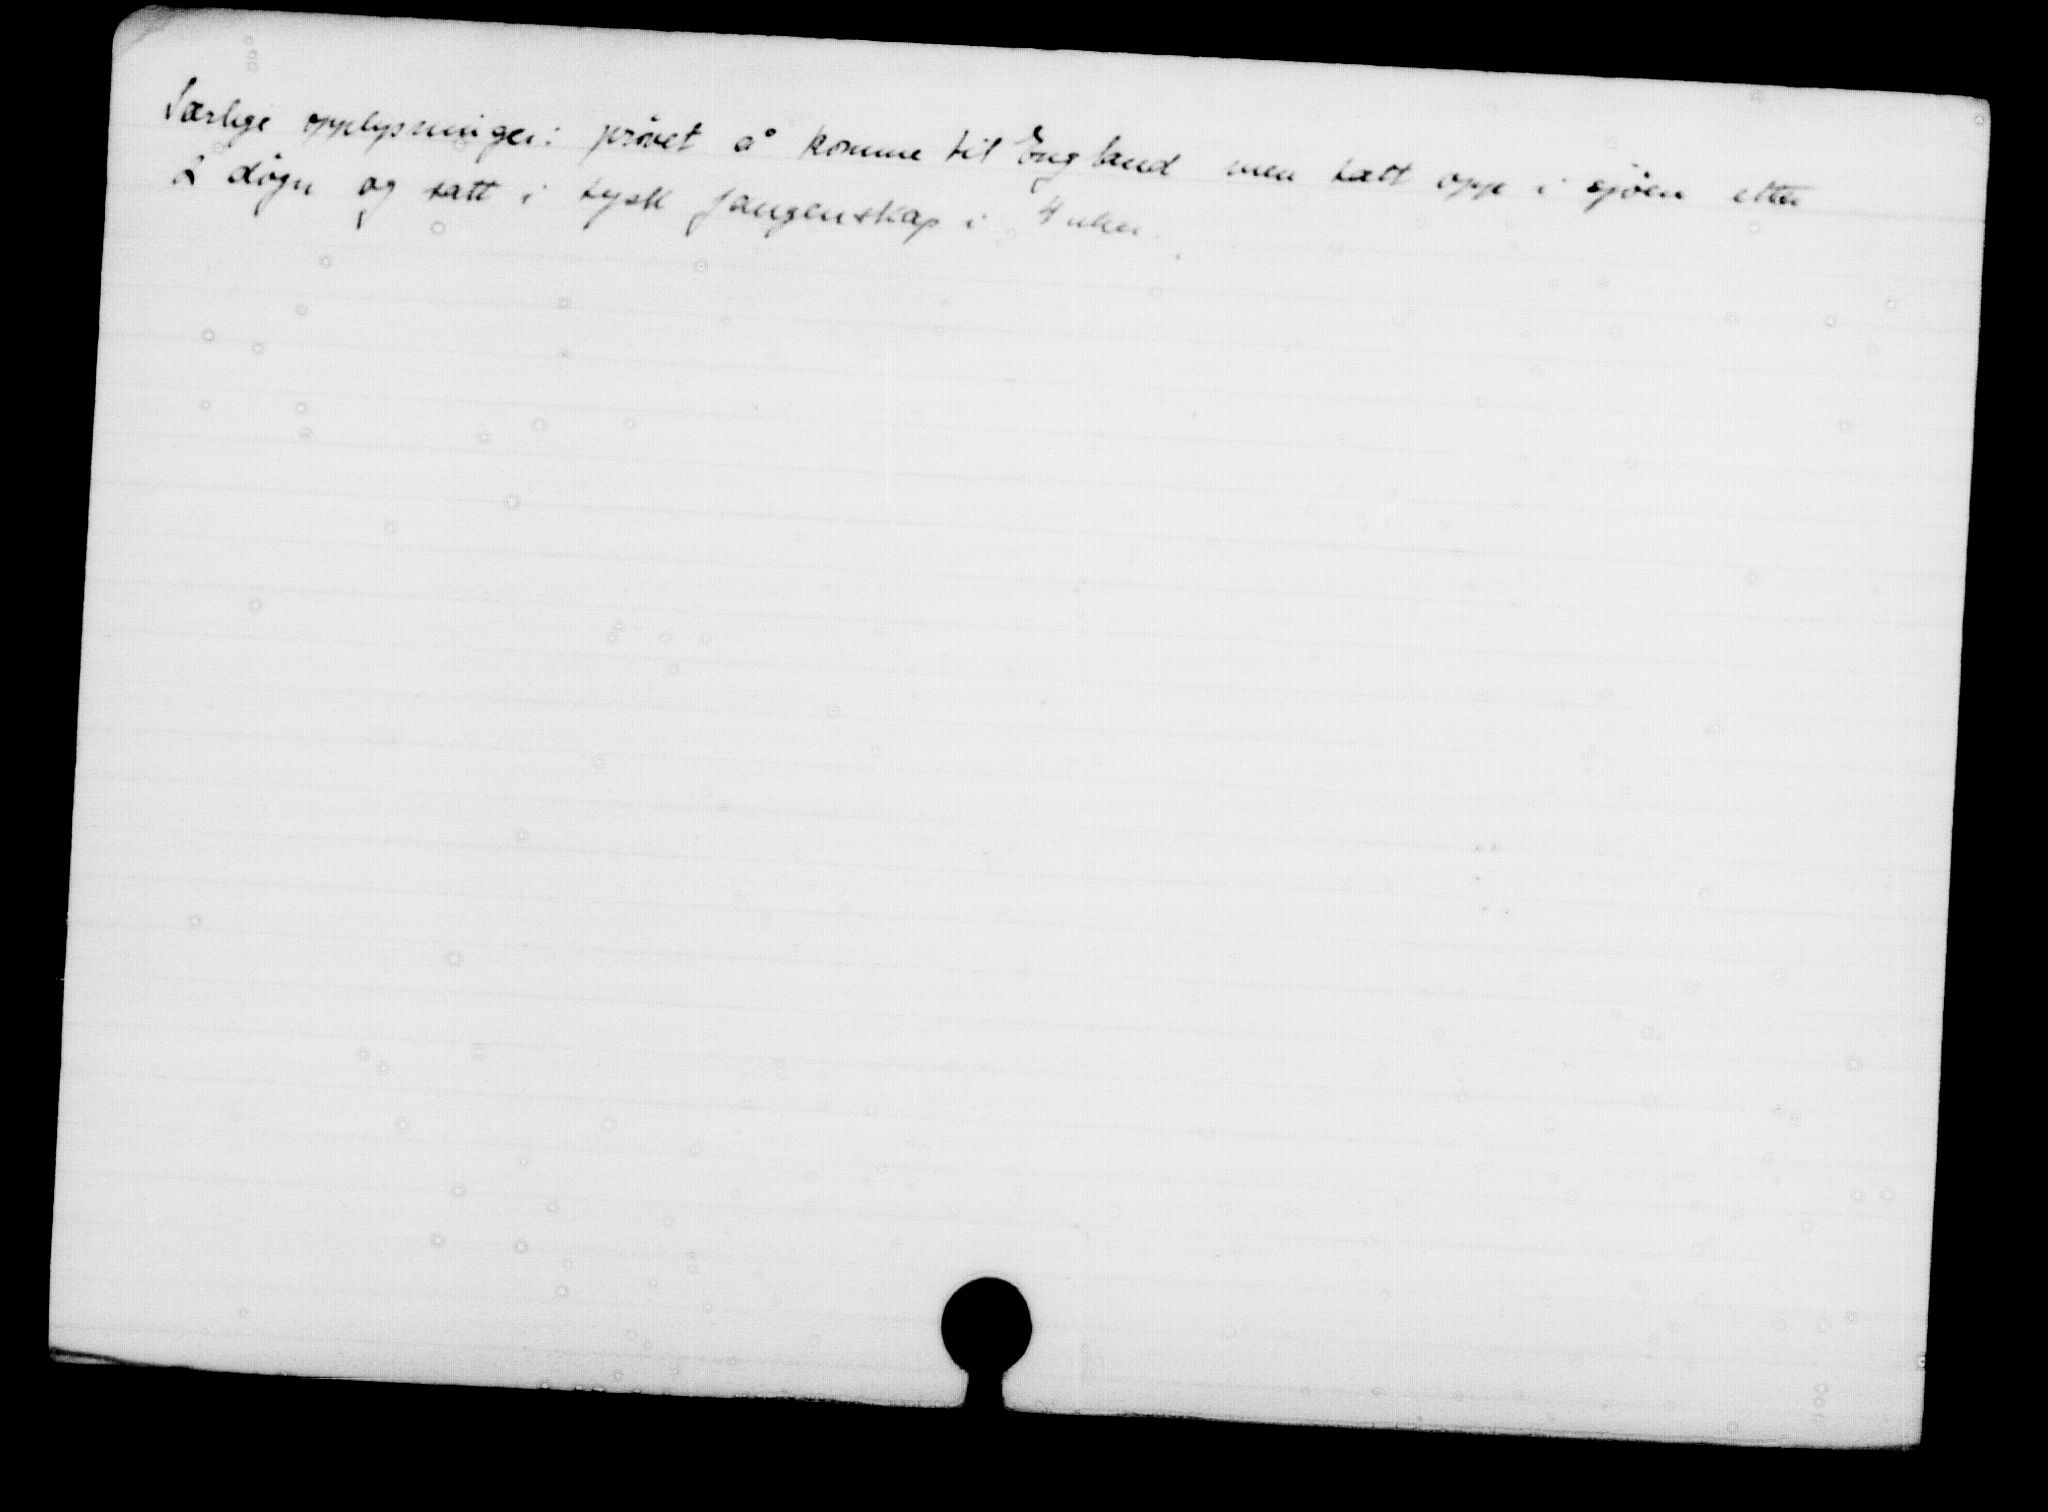 Særlige opplysninger: prövet å komme til England men tatt opp i sjöen etter
2 dögn og satt i tysk fangenskap i 4 uker.